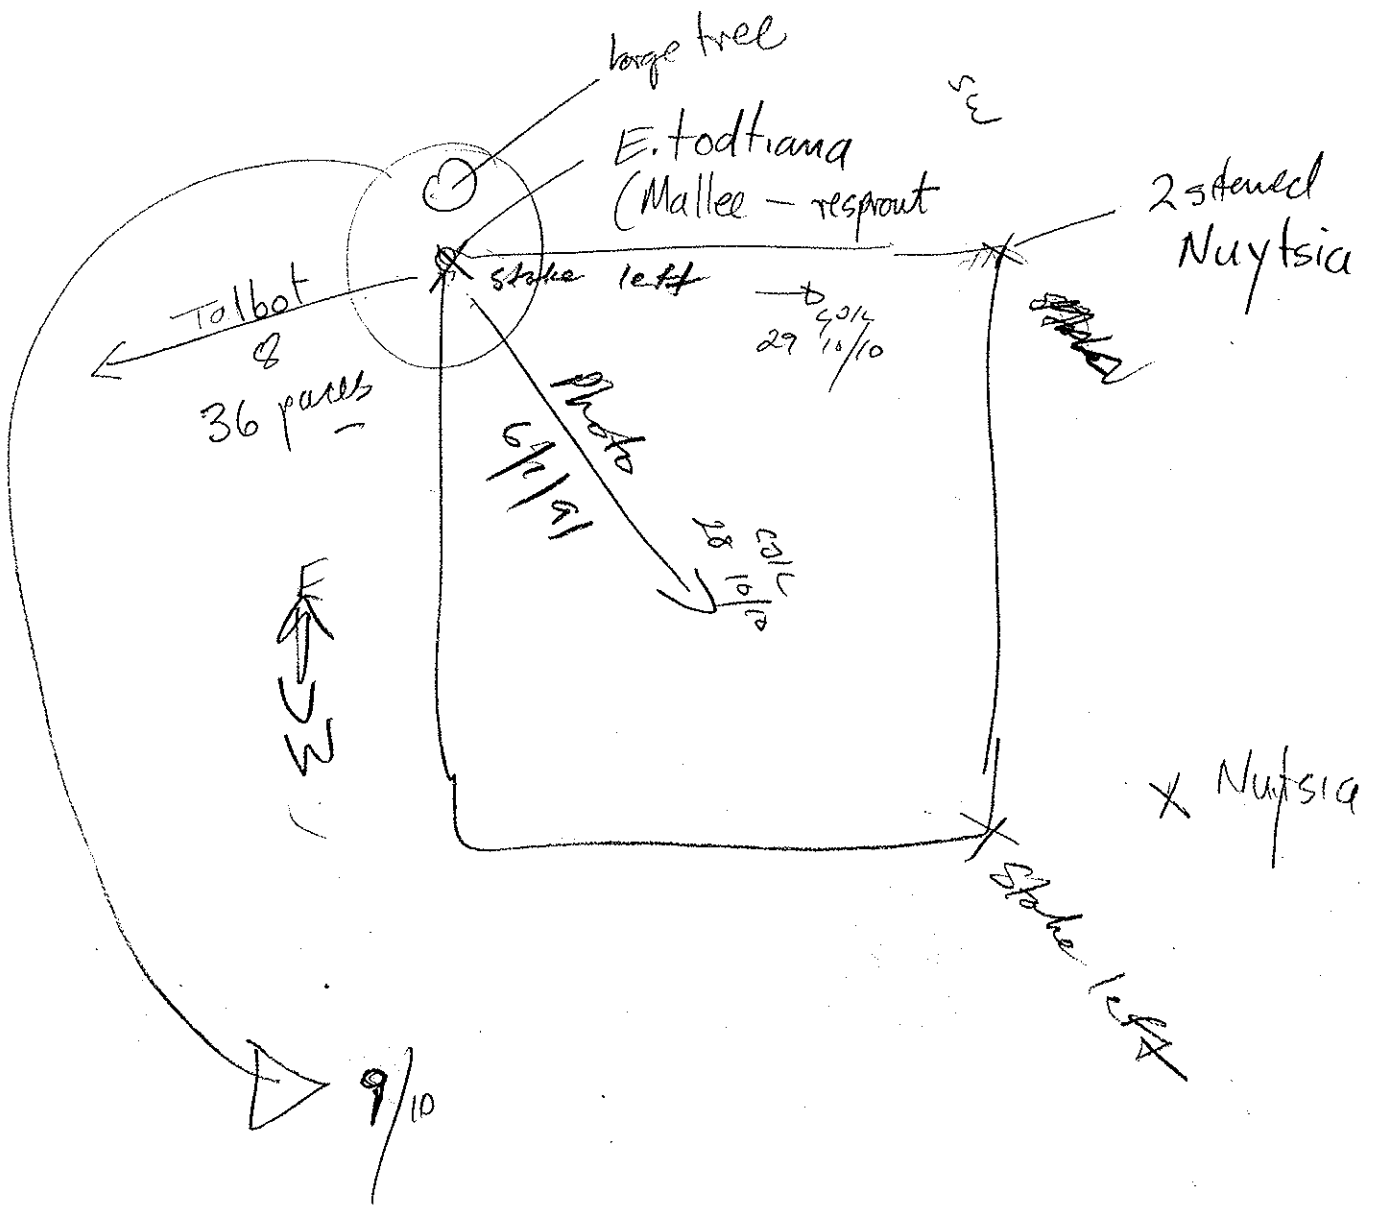 large tree
E. todtiana
(Mallee - resprout
2 stemed
Nuytsia
stake left
Talbot
8
36 paces
29 10/10
Photo
6/2/91
28
10/10
E
W
X Nuytsia
Stake left
9/10